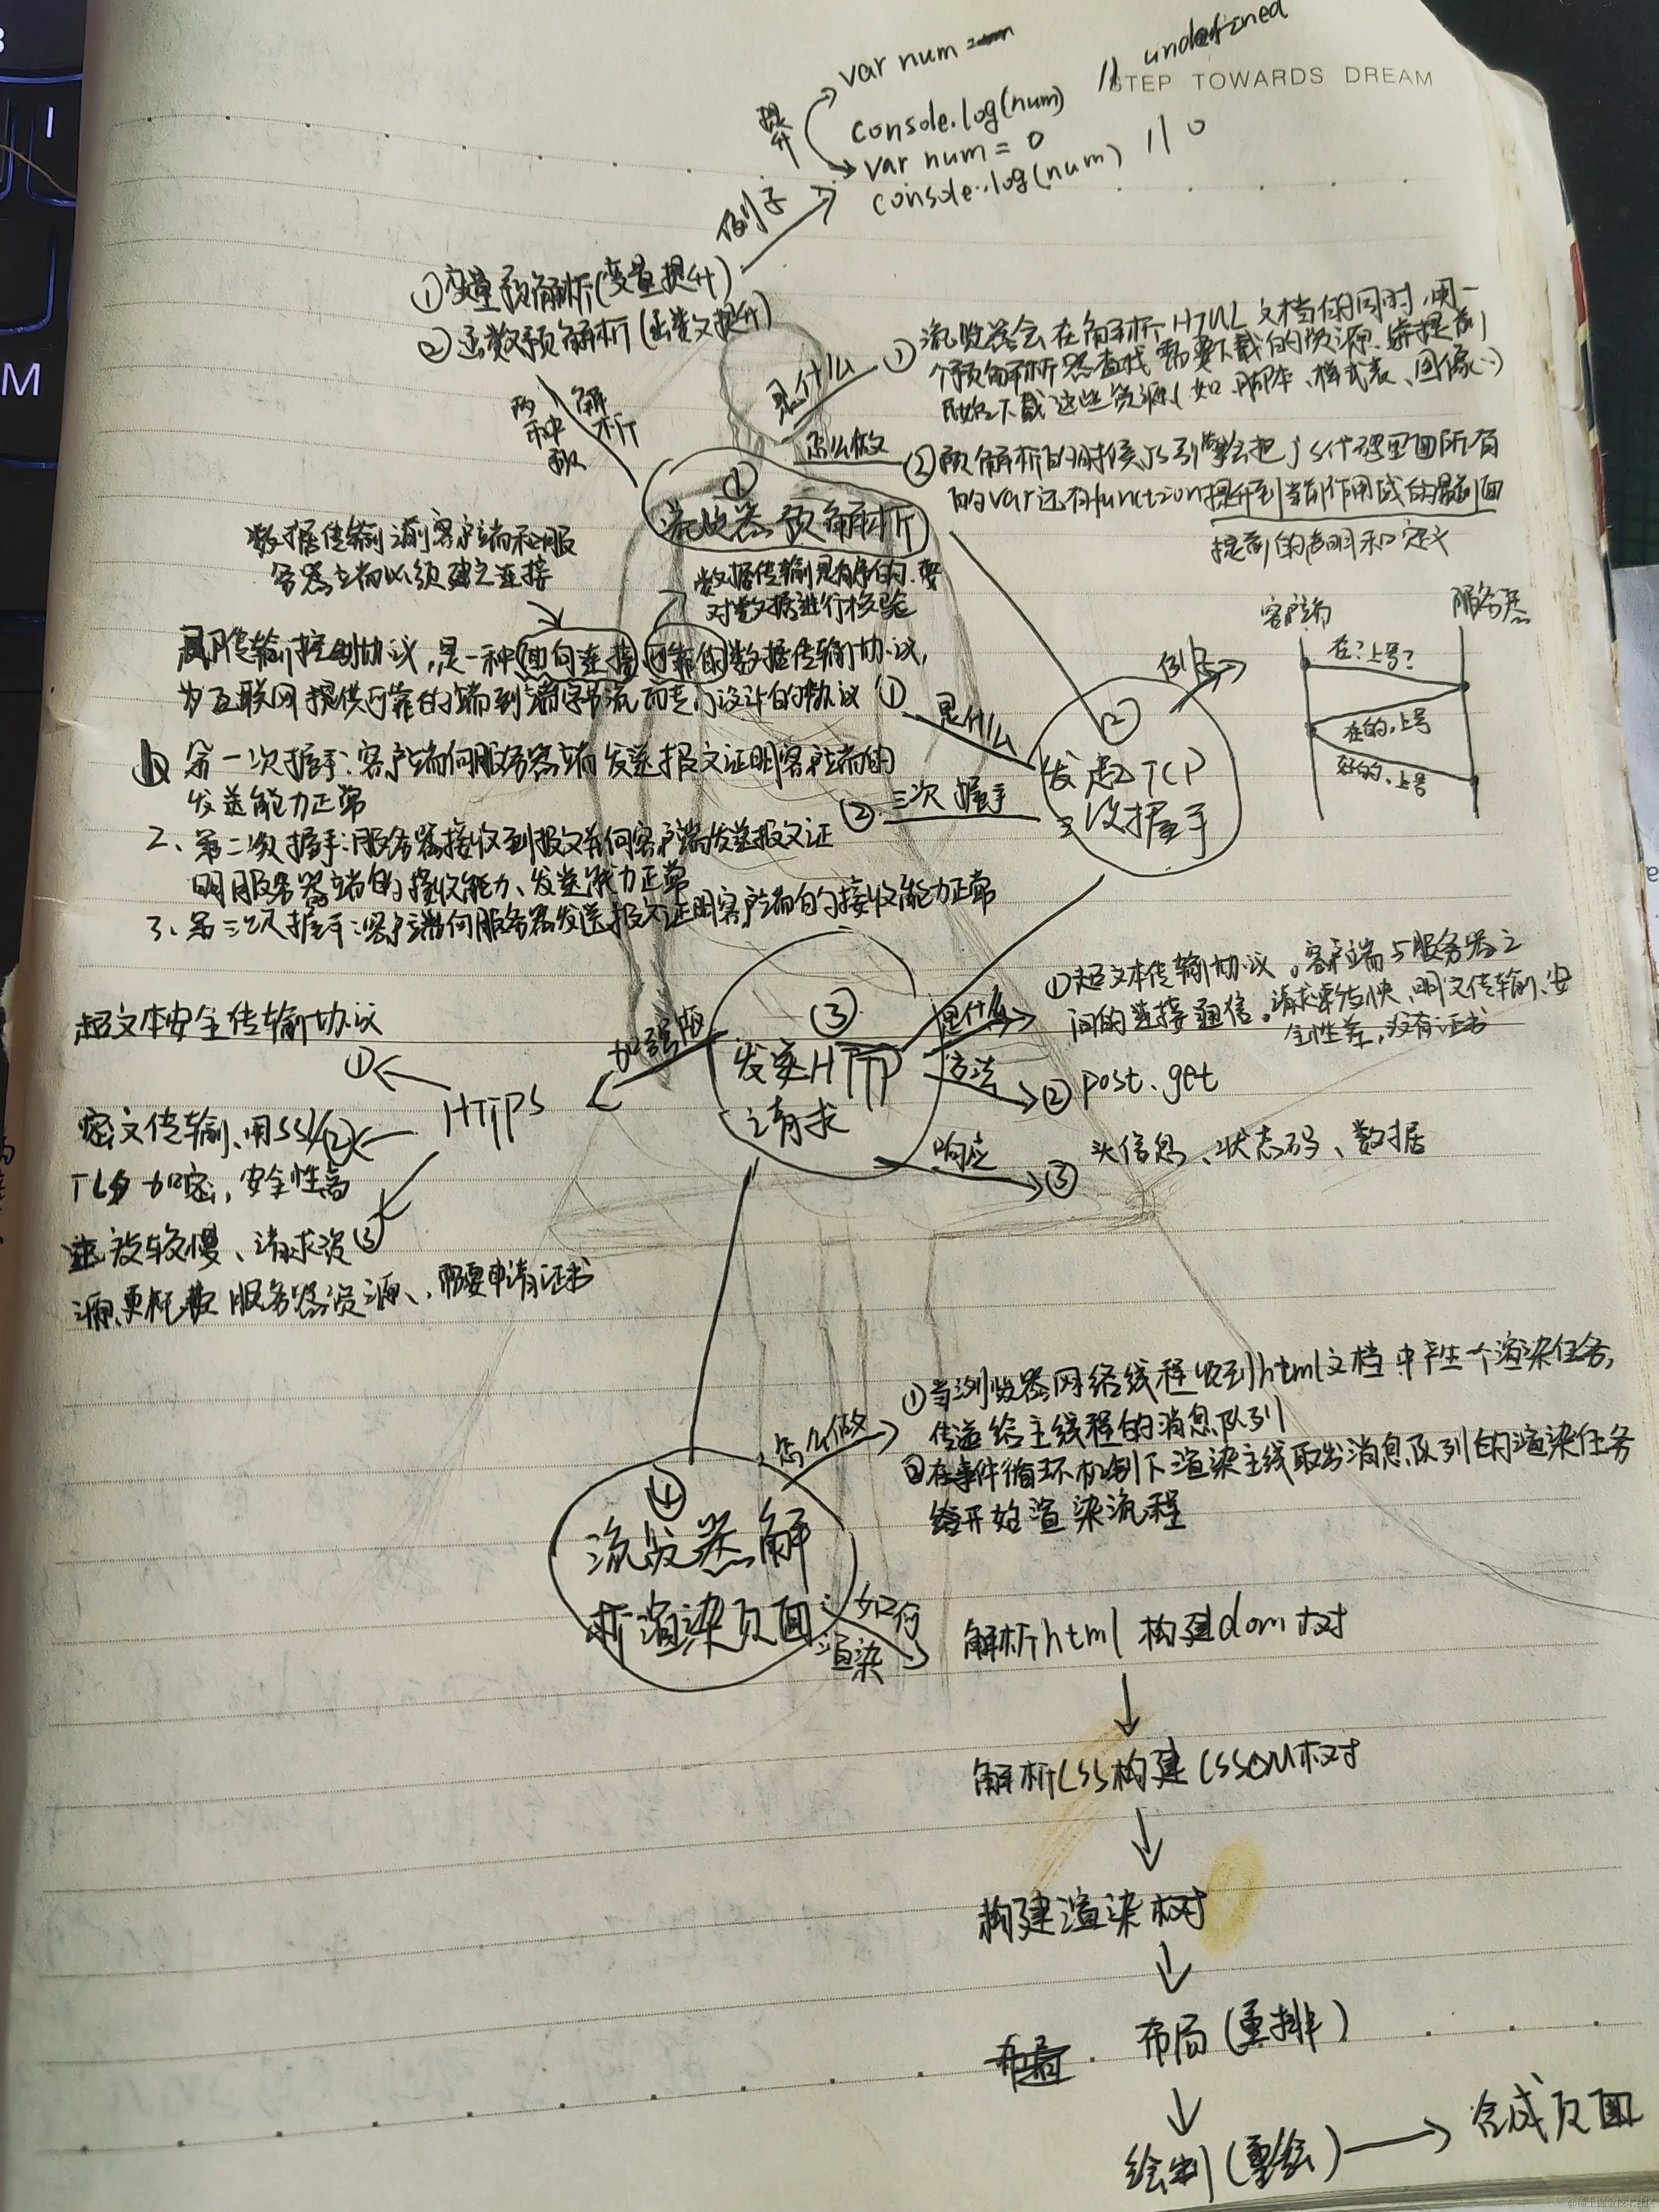 var num
console.log(num) // undefined
STEP TOWARDS DREAM
提升
var num = 0
console.log(num) // 0
例子
①变量预解析(变量提升)
②函数预解析(函数提升)
两种
解析
是什么
①浏览器会在解析HTML文档的同时,用一
个预解析器查找需要下载的资源,并提前
开始下载这些资源(如脚本、样式表、图像…)
怎么做
②预解析的时候JS引擎会把js代码里面所有
的var还有function提升到当前作用域的最前面
提前的声明和定义
①
浏览器预解析
数据传输前客户端和服
务器端必须建立连接
数据传输是有序的,要
对数据进行检验
传输控制协议,是一种面向连接可靠的数据传输协议,
为互联网提供可靠的端到端字节流而专门设计的协议①
是什么
②
发起TCP
三次握手
例子
客户端
服务器
在?上号?
在的,上号
好的,上号
三次握手
②
第一次握手:客户端向服务器端发送报文证明客户端的
发送能力正常
2、第二次握手:服务器接收到报文并向客户端发送报文证
明服务器端的接收能力、发送能力正常
3、第三次握手:客户端向服务器发送报文证明客户端的接收能力正常
③
发送HTTP
请求
是什么
①超文本传输协议。客户端与服务器之
间的连接通信。请求更快、明文传输、安
全性差,没有证书
方法
②post、get
响应
③头信息、状态码、数据
加强版
HTTPS
超文本安全传输协议
①
密文传输、用SSL/②
TLS加密,安全性高
较慢、请求资③
源更耗费服务器资源、需要申请证书
④
浏览器解
析渲染页面
怎么做
①当浏览器网络线程收到html文档中产生一个渲染任务,
传递给主线程的消息队列
②在事件循环机制下渲染主线取出消息队列的渲染任务
开始渲染流程
如何
渲染
解析html构建dom树
解析CSS构建CSSOM树
构建渲染树
布局(重排)
绘制(重绘)
合成页面
M
I
@稀土掘金技术社区